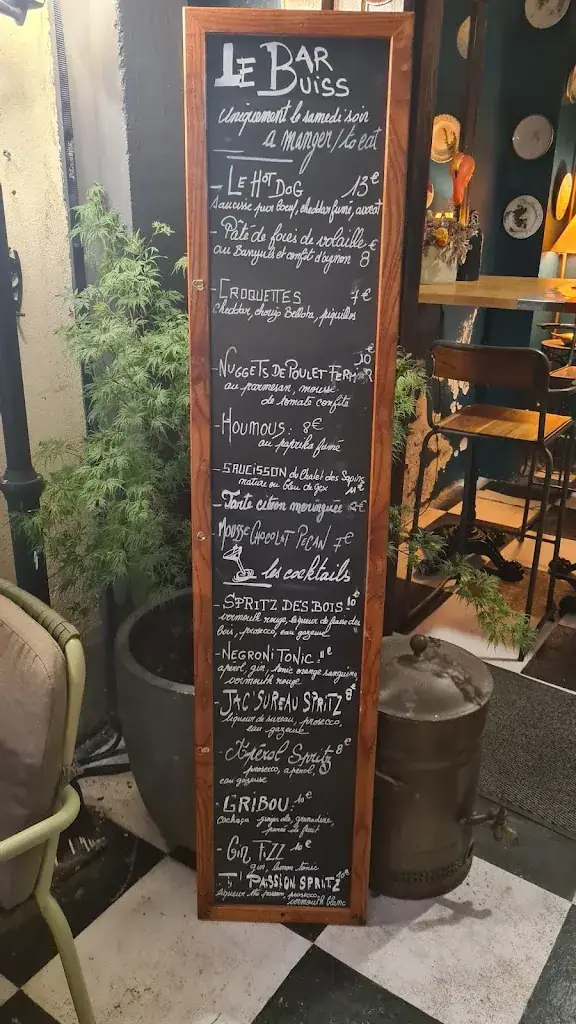 LE BAR
BUISS
Uniquement le samedi soir
a manger/to eat
- LE HOT DOG 13€
Saucisse pur boeuf, cheddar fumé, avocat
- Pâté de foies de volaille
au Banyuls et confit d'oignon 8€
- CROQUETTES 7€
cheddar, chorizo Bellota, piquillos
- NUGGETS DE POULET FERMIER 10€
au parmesan, mousse
de tomate confite
- HOUMOUS: 8€
au paprika fumé
- SAUCISSON du Chalet des Sapins
nature ou bleu de Gex
- Tarte citron meringuée
- MOUSSE CHOCOLAT PECAN 7€
les cocktails
- SPRITZ DES BOIS 10€
vermouth rouge, liqueur de fraise des
bois, prosecco, eau gazeuse
- NEGRONI TONIC:
apérol, gin, tonic orange sanguine
vermouth rouge
- JAC'SUREAU SPRITZ 8€
liqueur de sureau, prosecco,
eau gazeuse
- Apérol Spritz 8€
prosecco, apérol,
eau gazeuse
- GRIBOU: 10€
Cachaça ginger ale, grenadine,
purée de fruit
- Gin FIZZ 10€
gin, lemon tonic
- T' PASSION SPRITZ 10€
liqueur thé passion, prosecco,
vermouth blanc